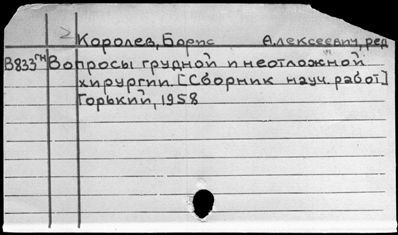 Королев, Борис Алексеевич, ред
В833гн Вопросы грудной и неотложной
хирургии. [Сборник науч. работ]
Горький, 1958